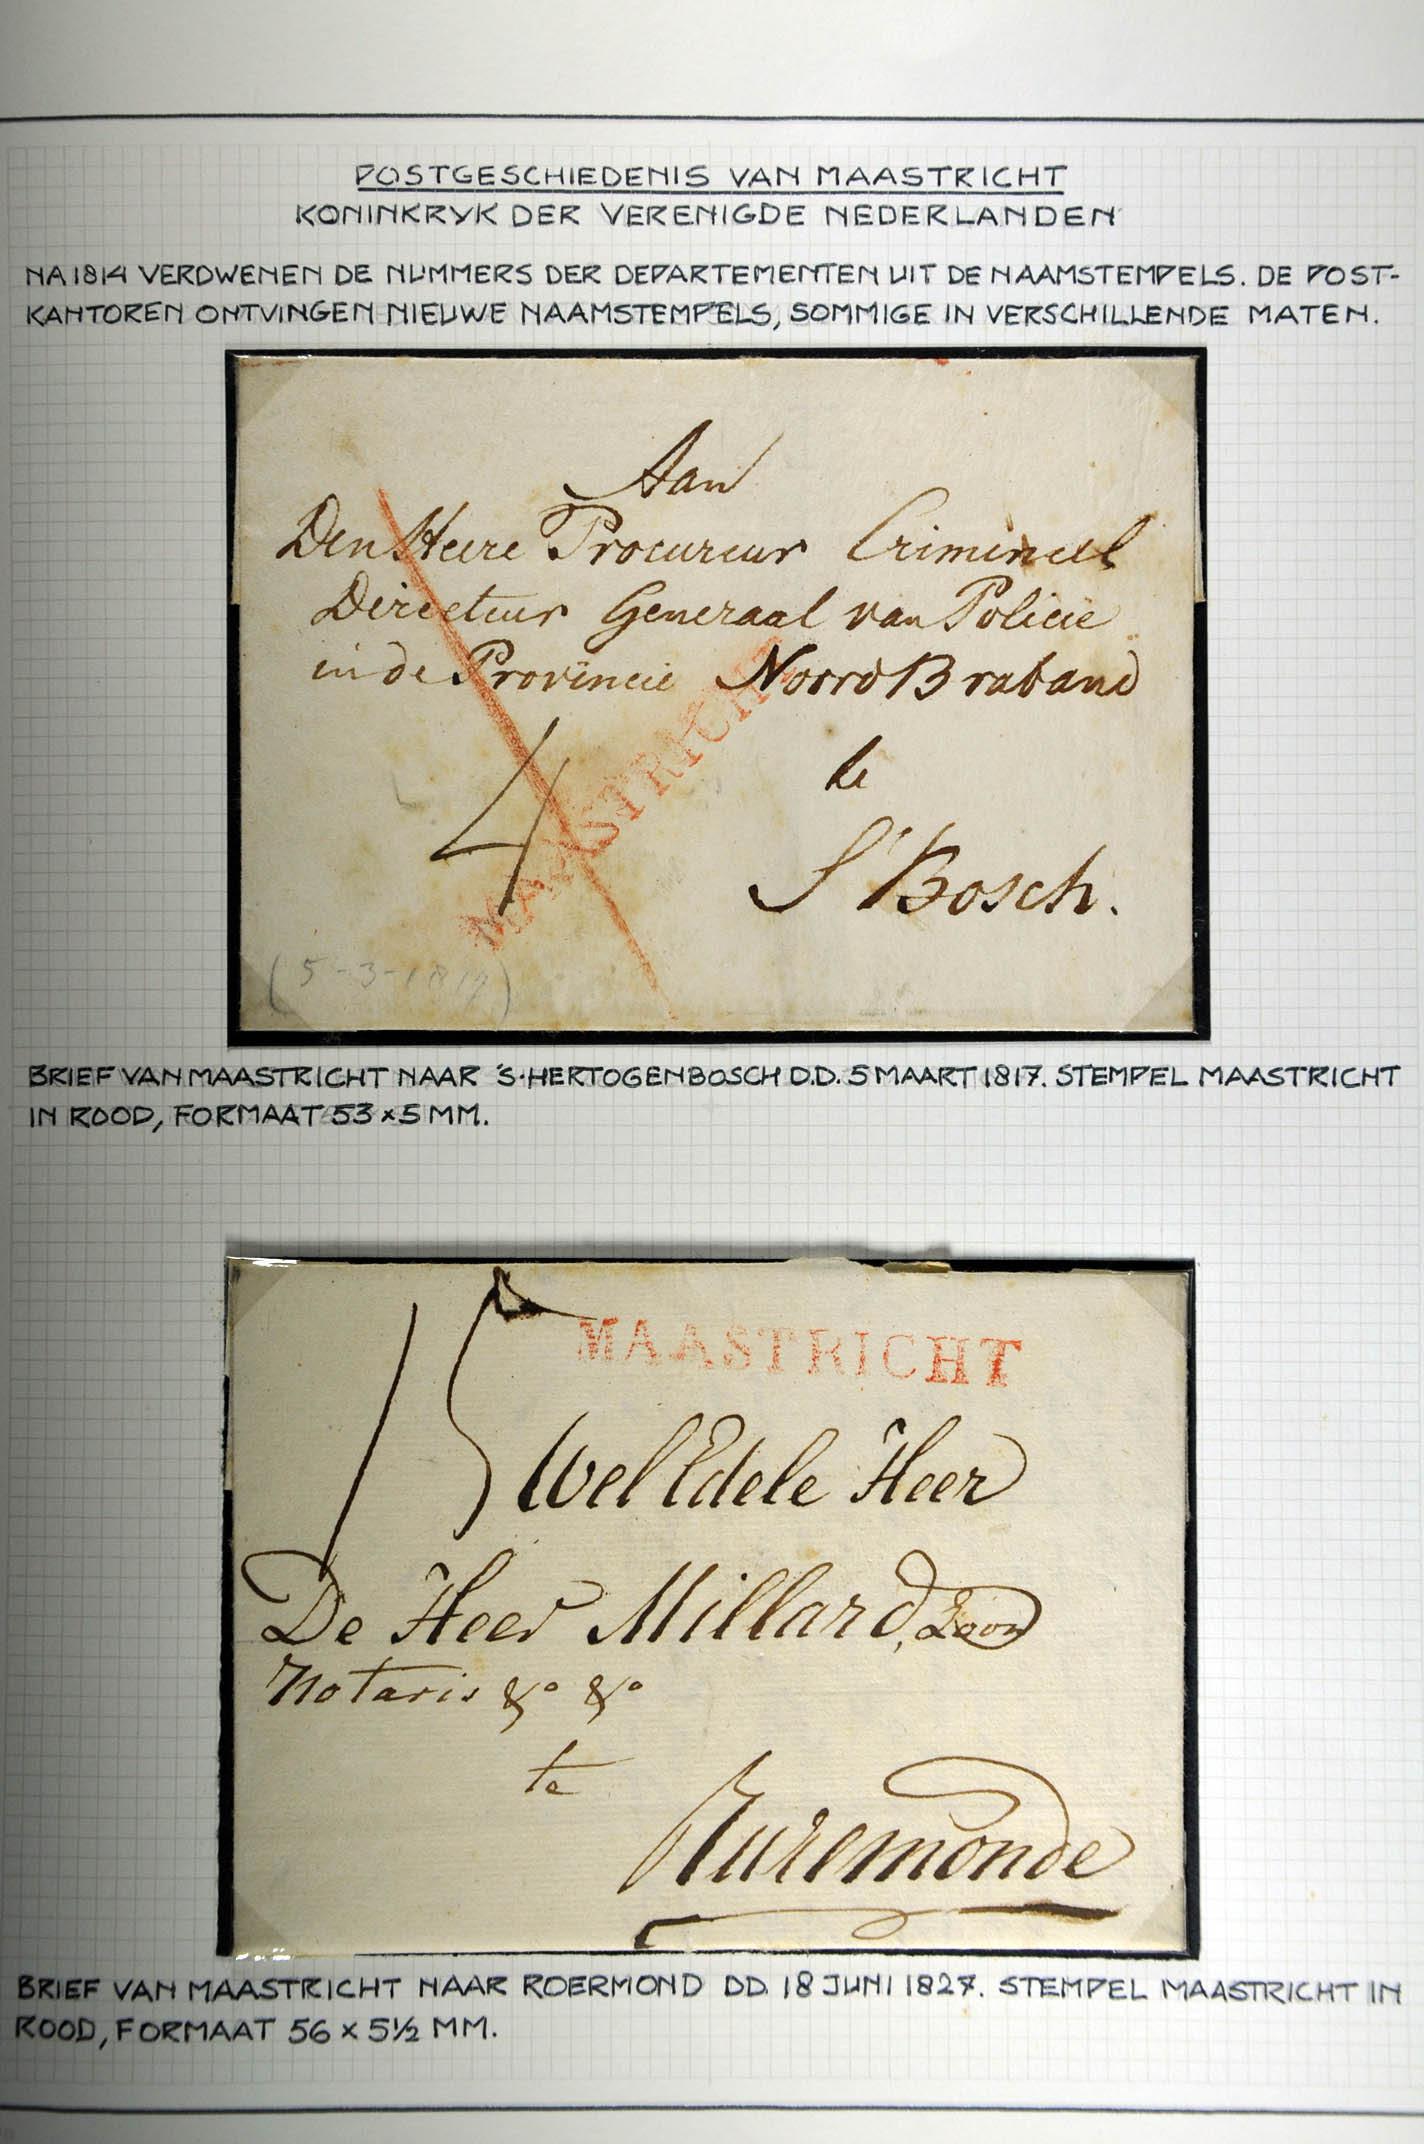 POSTGESCHIEDENIS VAN MAASTRICHT
KONINKRYK DER VERENIGDE NEDERLANDEN
NA 1814 VERDWENEN DE NUMMERS DER DEPARTEMENTEN UIT DE NAAMSTEMPELS. DE POST-
KANTOREN ONTVINGEN NIEUWE NAAMSTEMPELS, SOMMIGE IN VERSCHILLENDE MATEN.
Aan
Den Heere Procureur Crimineel
Directeur Generaal van Policie
in de Provincie Noord Braband
4
MAASTRICHT
te
S'Bosch.
(5-3-1817)
BRIEF VAN MAASTRICHT NAAR 'S-HERTOGENBOSCH D.D. 5 MAART 1817. STEMPEL MAASTRICHT
IN ROOD, FORMAAT 53 x 5 MM.
15
MAASTRICHT
Wel Edele Heer
De Heer Millard, Zoon
Notaris &o &o
te
Ruremonde
BRIEF VAN MAASTRICHT NAAR ROERMOND DD. 18 JUNI 1827. STEMPEL MAASTRICHT IN
ROOD, FORMAAT 56 x 5½ MM.